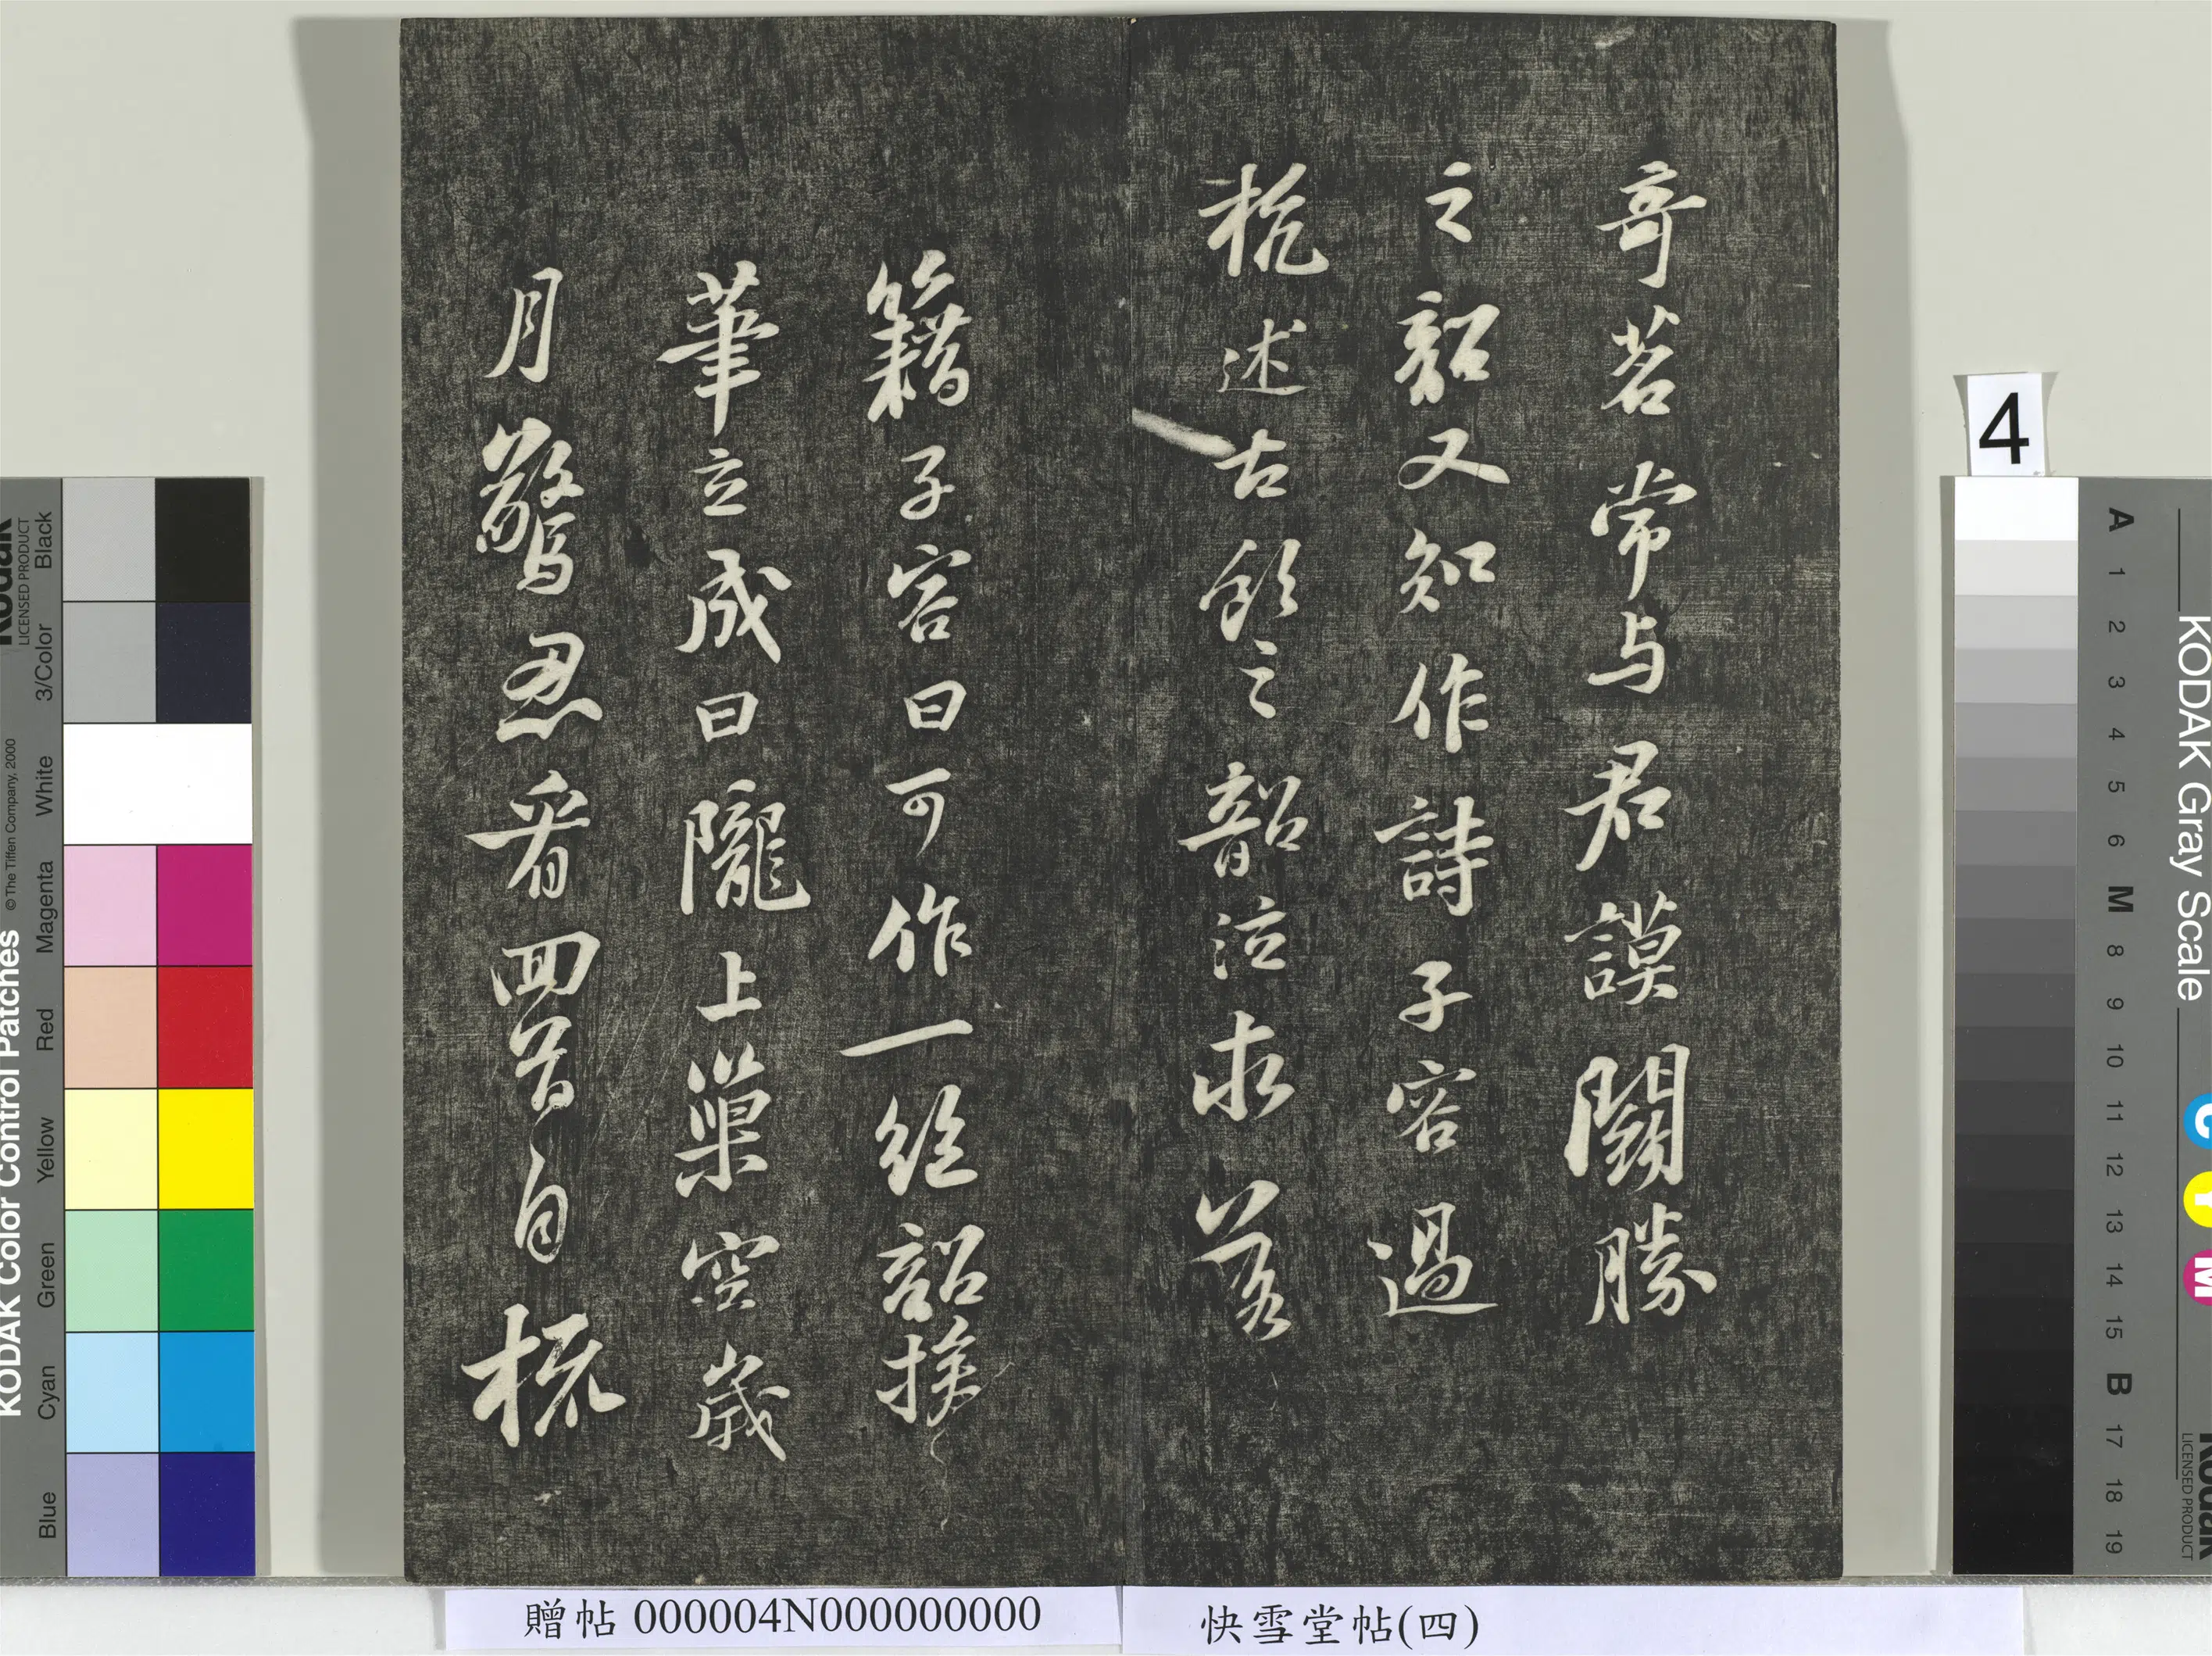 奇茗常与君謨鬭勝
之韶又知作詩子容過
杭述古飲之韶泣求落
籍子容曰可作一絶韶援
筆立成曰隴上巢空歲
月驚忍看回首自梳
贈帖 000004N000000000
快雪堂帖(四)
4
KODAK Color Control Patches
© The Tiffen Company, 2000
Kodak
LICENSED PRODUCT
Blue Cyan Green Yellow Red Magenta White 3/Color Black
KODAK Gray Scale
C Y M
Kodak
LICENSED PRODUCT
A 1 2 3 4 5 6 M 8 9 10 11 12 13 14 15 B 17 18 19